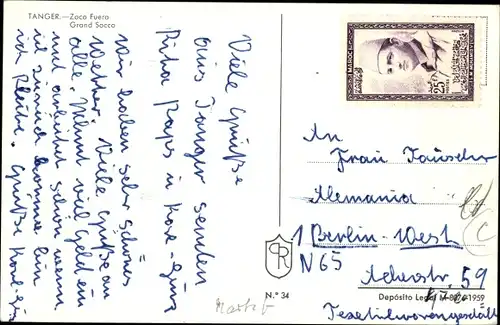 TANGER.—Zoco Fuera
Grand Socco
Viele Grüße
aus Tanger senden
Paps u. Karl-
Wir haben sehr schönes
Wetter. Viele Grüße an
alle. Nehmt viel Geld ein
und arbeitet schön wenn
ich zurück komme bin
ich Pleite. Grüße Karl-
MAROC
25F
An
Frau Tauscher
Alemania
1 Berlin-West
N65
Ackerstr. 59
Textilwarengeschäft
PR
N.º 34
Depósito Legal M-8074-1959